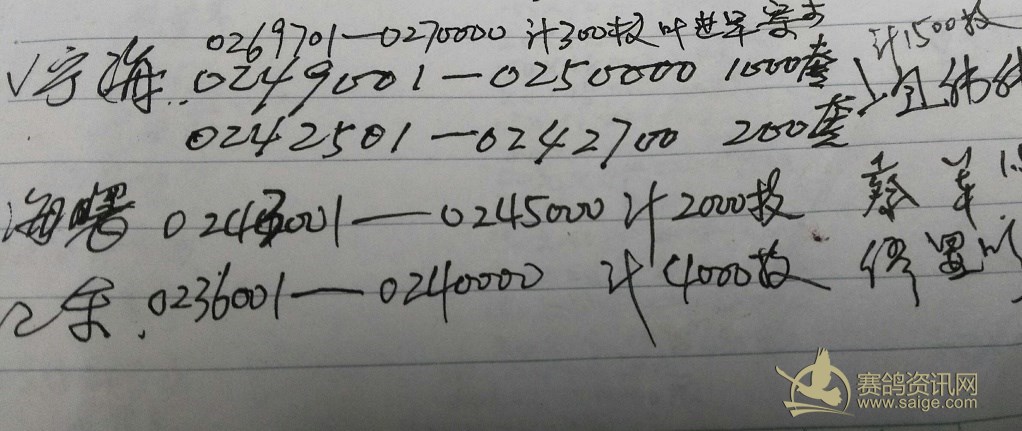 0269701—0270000 计300枚 叶世军 计1500枚
宁海 0249001—0250000 1000套
0242501—0242700 200套
海曙 0243001—0245000 计2000枚
0236001—0240000 计4000枚
赛鸽资讯网
www.saige.com